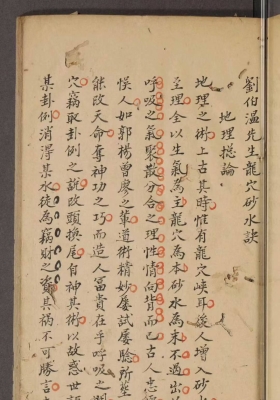 劉伯溫先生龍穴砂水訣
地理捴論
地理之術上古其時惟有龍穴峽耳後人增入砂水
至理全以生氣為主龍穴為本砂水為末不過出
呼吸之氣聚散分合之理性情向背而已古人忠
悮人如郭楊曾廖之輩道術精妙屢試屢驗所
能改天命奪神功之巧而造人富貴在乎呼吸之
穴竊取卦例之說改頭換尾自神其術以故惑世
某卦例消得某水徒為竊財之資其禍不可勝言